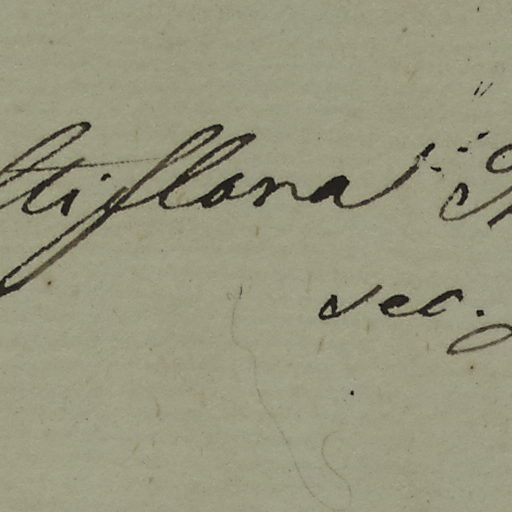 ltiflora
sec.